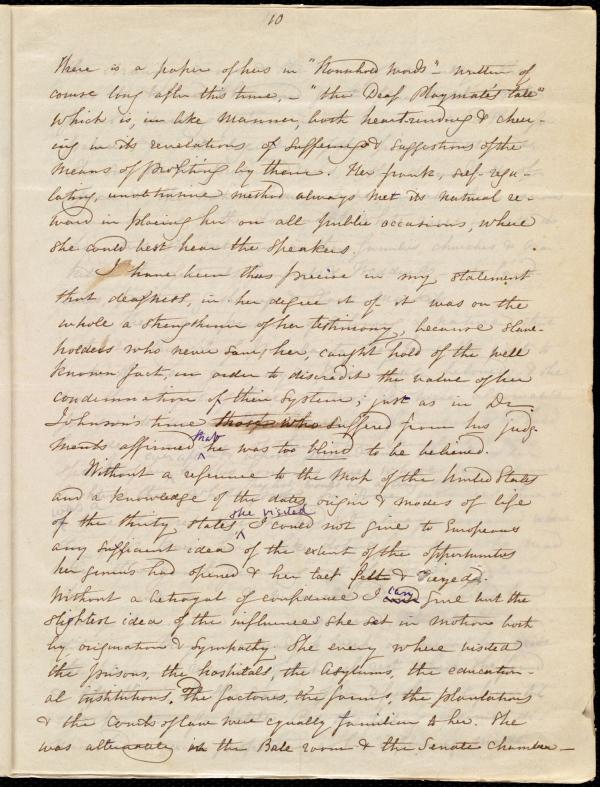 10
There is a paper of hers in "Household Words" – written of
course long after this time, – "the Deaf Playmate's Tale"
which is, in like manner, both heart-rending & cheer-
ing in its revelations of suffering & suggestions of the
means of profiting by them. Her frank, self-regu-
lating, unobtrusive method always met its natural re-
ward in placing her on all public occasions, where
she could best hear the speakers.
I have been thus precise in my statement
that deafness, in her degree it of it was on the
whole a strengthener of her testimony, because slave-
holders who never saw her, caught hold of the well
known fact, in order to discredit the value of her
condemnation of their system; just as in Dr.
Johnson's time those who suffered from his judg-
ments affirmed that he was too blind to be believed.
Without a reference to the Map of the United States
and a knowledge of the dates, origin & modes of life
of the thirty states she visited I could not give to Europeans
any sufficient idea of the extent of the opportunities
her genius had opened & her tact felt & seized.
Without a betrayal of confidence I can give but the
slightest idea of the influences she set in motion both
by origination & sympathy. She every where visited
the prisons, the hospitals, the asylums, the education-
al institutions. The factories, the farms, the plantations
& the Courts of law were equally familiar to her. She
was alternately in the Ball room & the Senate chamber –